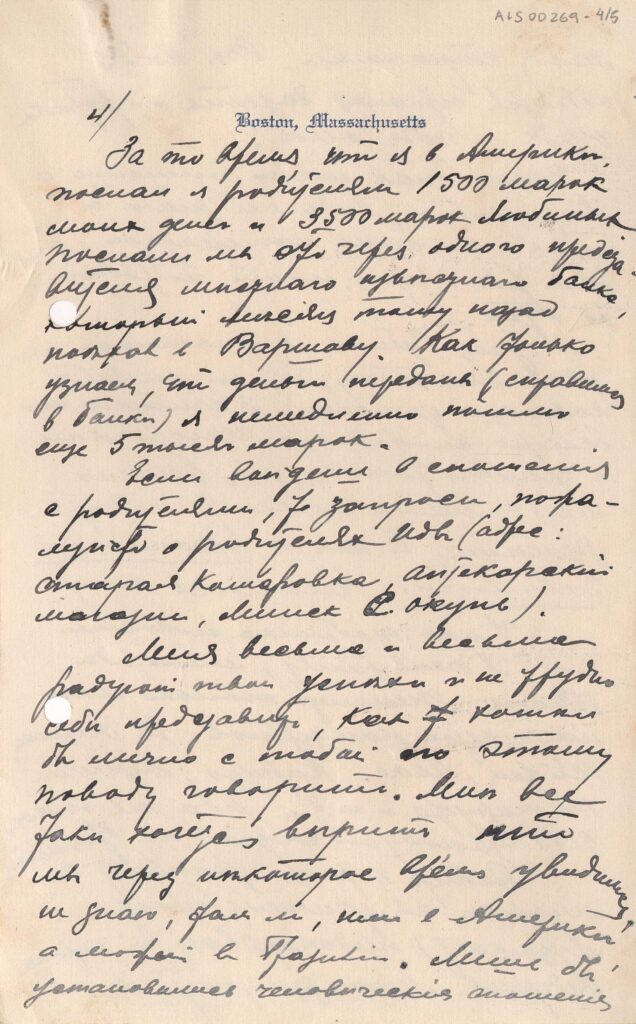 ALS 00269 - 4/5
4/
Boston, Massachusetts
За то время, что я в Америкѣ,
послал я родителям 1500 марок
моих денег и 3500 марок Любиных
Послали мы это через одного
мѣстнаго извѣстнаго банка,
который мѣсяц тому назад
поѣхав в Варшаву. Как только
узнаем, что деньги переданы (справимся
в банкѣ) я немедленно пошлю
еще 5 тысяч марок.
Если войдешь в сношения
с родителями, то запроси, пожа-
луйста о родителях Иды (адрес:
старая Комаровка, аптекарский
магазин, Минск С. Окунь).
Меня весьма и весьма
радуют твои успѣхи и не трудно
себѣ представить, как я хотѣл
бы лично с тобой по этому
поводу говорить. Мнѣ все
таки хочется вѣрить что
мы через нѣкоторое время увидимся,
не знаю, там ли, или в Америкѣ
а может в Бразилии. Лишь бы
установились человѣческия сношения